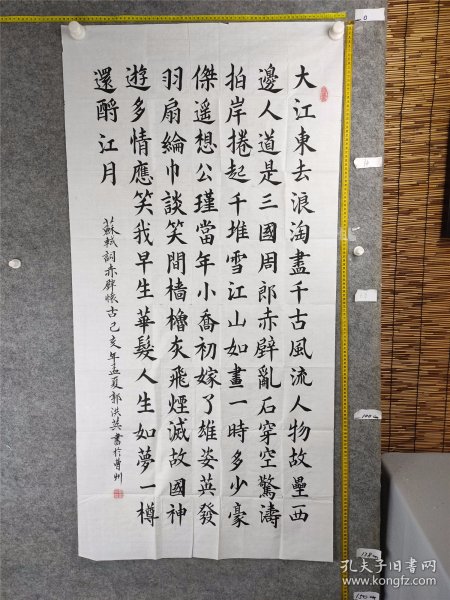 大江東去浪淘盡千古風流人物故壘西
邊人道是三國周郎赤壁亂石穿空驚濤
拍岸捲起千堆雪江山如畫一時多少豪
傑遥想公瑾當年小喬初嫁了雄姿英發
羽扇綸巾談笑間檣櫓灰飛煙滅故國神
遊多情應笑我早生華髮人生如夢一樽
還酹江月
蘇軾詞赤壁懷古己亥年孟夏郭洪英書於曹州
0
100cm
150cm
孔夫子旧书网
www.kongfz.com